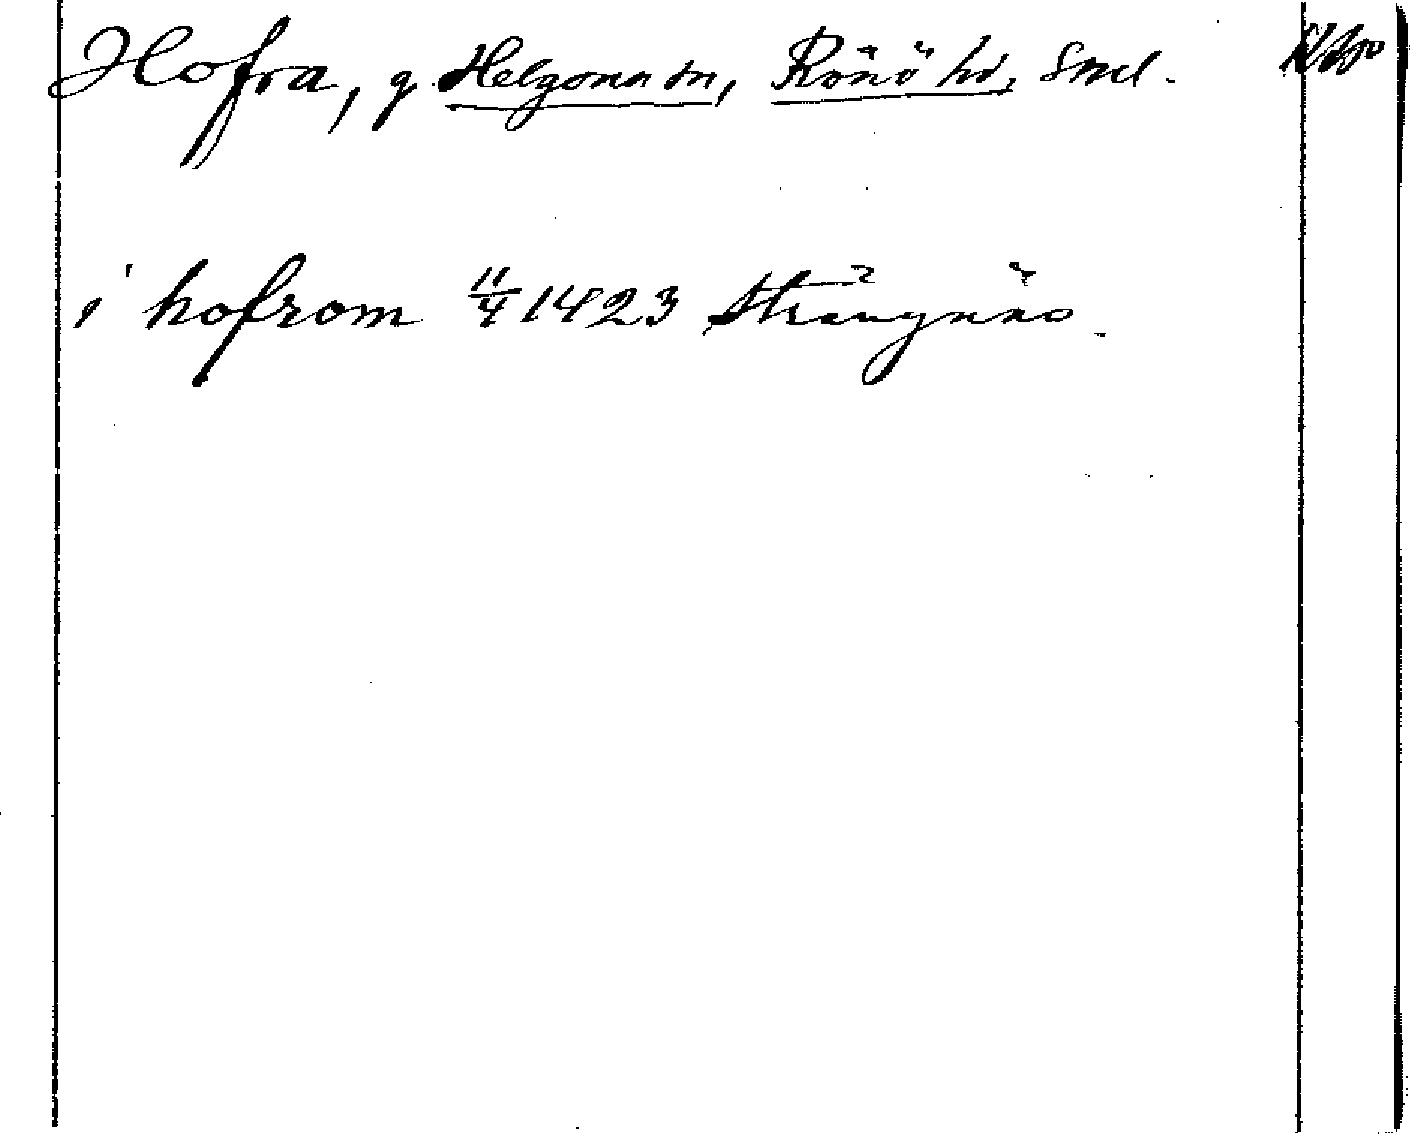 Hofra, g. Helgona sn, Rönö hd, Sml.
i hofrom 11/4 1423 Strängnäs.